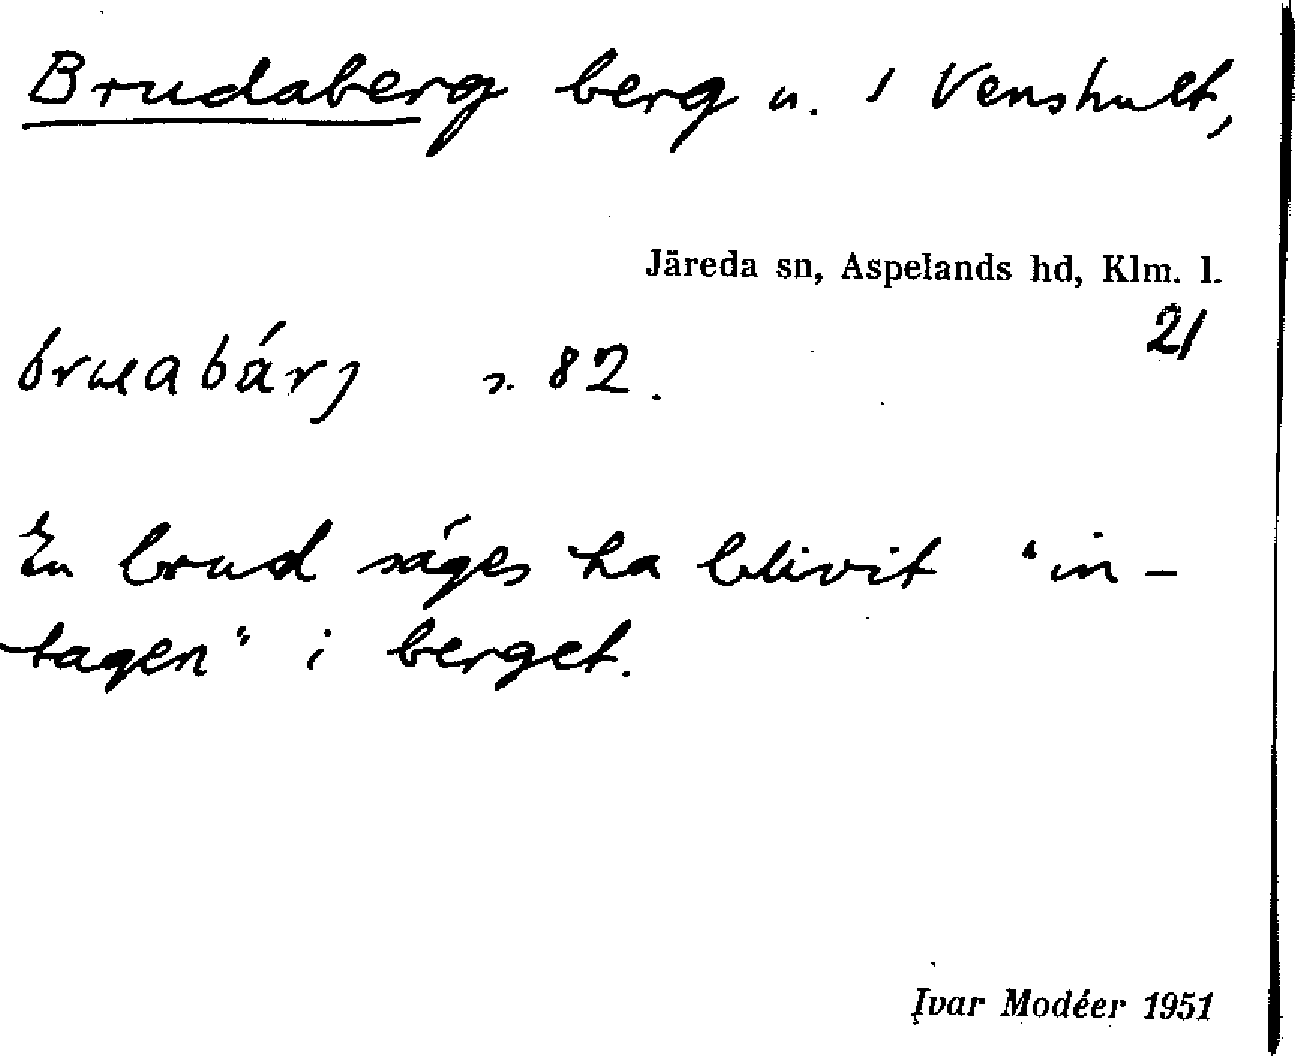 Brudaberg berg u. 1 Venshult,
Järeda sn, Aspelands hd, Klm. l.
21
s. 82.
En brud säges ha blivit "in-
tagen" i berget.
Ivar Modéer 1951